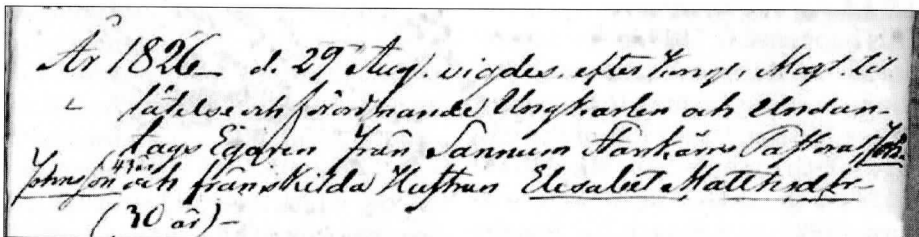 År 1826 d. 29 Aug. vigdes, efter Kungl. Majt. til
låtelse och förordnande Ungkarlen och Undan-
tags Ägaren från Sannum Starkärrs Pastorat, Joh.
Johnsson 43 år och frånskilda Hustrun Elisabet Matthisdr
(30 år) -